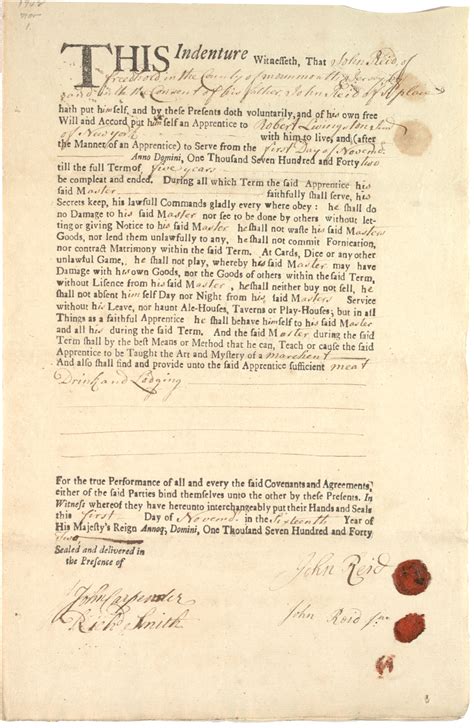 1742
Nov
1
THIS Indenture Witnesseth, That John Reid of
Freehold in the County of monmouth Jersey
and with the Consent of his father John Reid of place
hath put himself, and by these Presents doth voluntarily, and of his own free
Will and Accord put himself an Apprentice to Robert Livingston Jun
of New York with him to live, and (after
the Manner of an Apprentice) to Serve from the first Day of Novemb
Anno Domini, One Thousand Seven Hundred and Forty two
till the full Term of five years
be compleat and ended. During all which Term the said Apprentice his
said Master faithfully shall serve, his
Secrets keep, his lawfull Commands gladly every where obey: he shall do
no Damage to his said Master nor see to be done by others without let-
ting or giving Notice to his said Master he shall not waste his said Masters
Goods, nor lend them unlawfully to any, he shall not commit Fornication,
nor contract Matrimony within the said Term. At Cards, Dice or any other
unlawful Game, he shall not play, whereby his said Master may have
Damage with his own Goods, nor the Goods of others within the said Term,
without Lisence from his said Master, he shall neither buy nor sell, he
shall not absent himself Day nor Night from his said Masters Service
without his Leave, nor haunt Ale-Houses, Taverns or Play-Houses; but in all
Things as a faithful Apprentice he shall behave himself to his said Master
and all his during the said Term. And the said Master during the said
Term shall by the best Means or Method that he can, Teach or cause the said
Apprentice to be Taught the Art and Mystery of a marchent
And also shall find and provide unto the said Apprentice sufficient meat
Drink and Lodging
For the true Performance of all and every the said Covenants and Agreements,
either of the said Parties bind themselves unto the other by these Presents. In
Witness whereof they have hereunto interchangeably put their Hands and Seals
this first Day of Novemb in the Sixteenth Year of
His Majesty's Reign Annoq; Domini, One Thousand Seven Hundred and Forty
two
Sealed and delivered in
the Presence of
John Reid
John Carpender
Richd Smith
John Reid
8